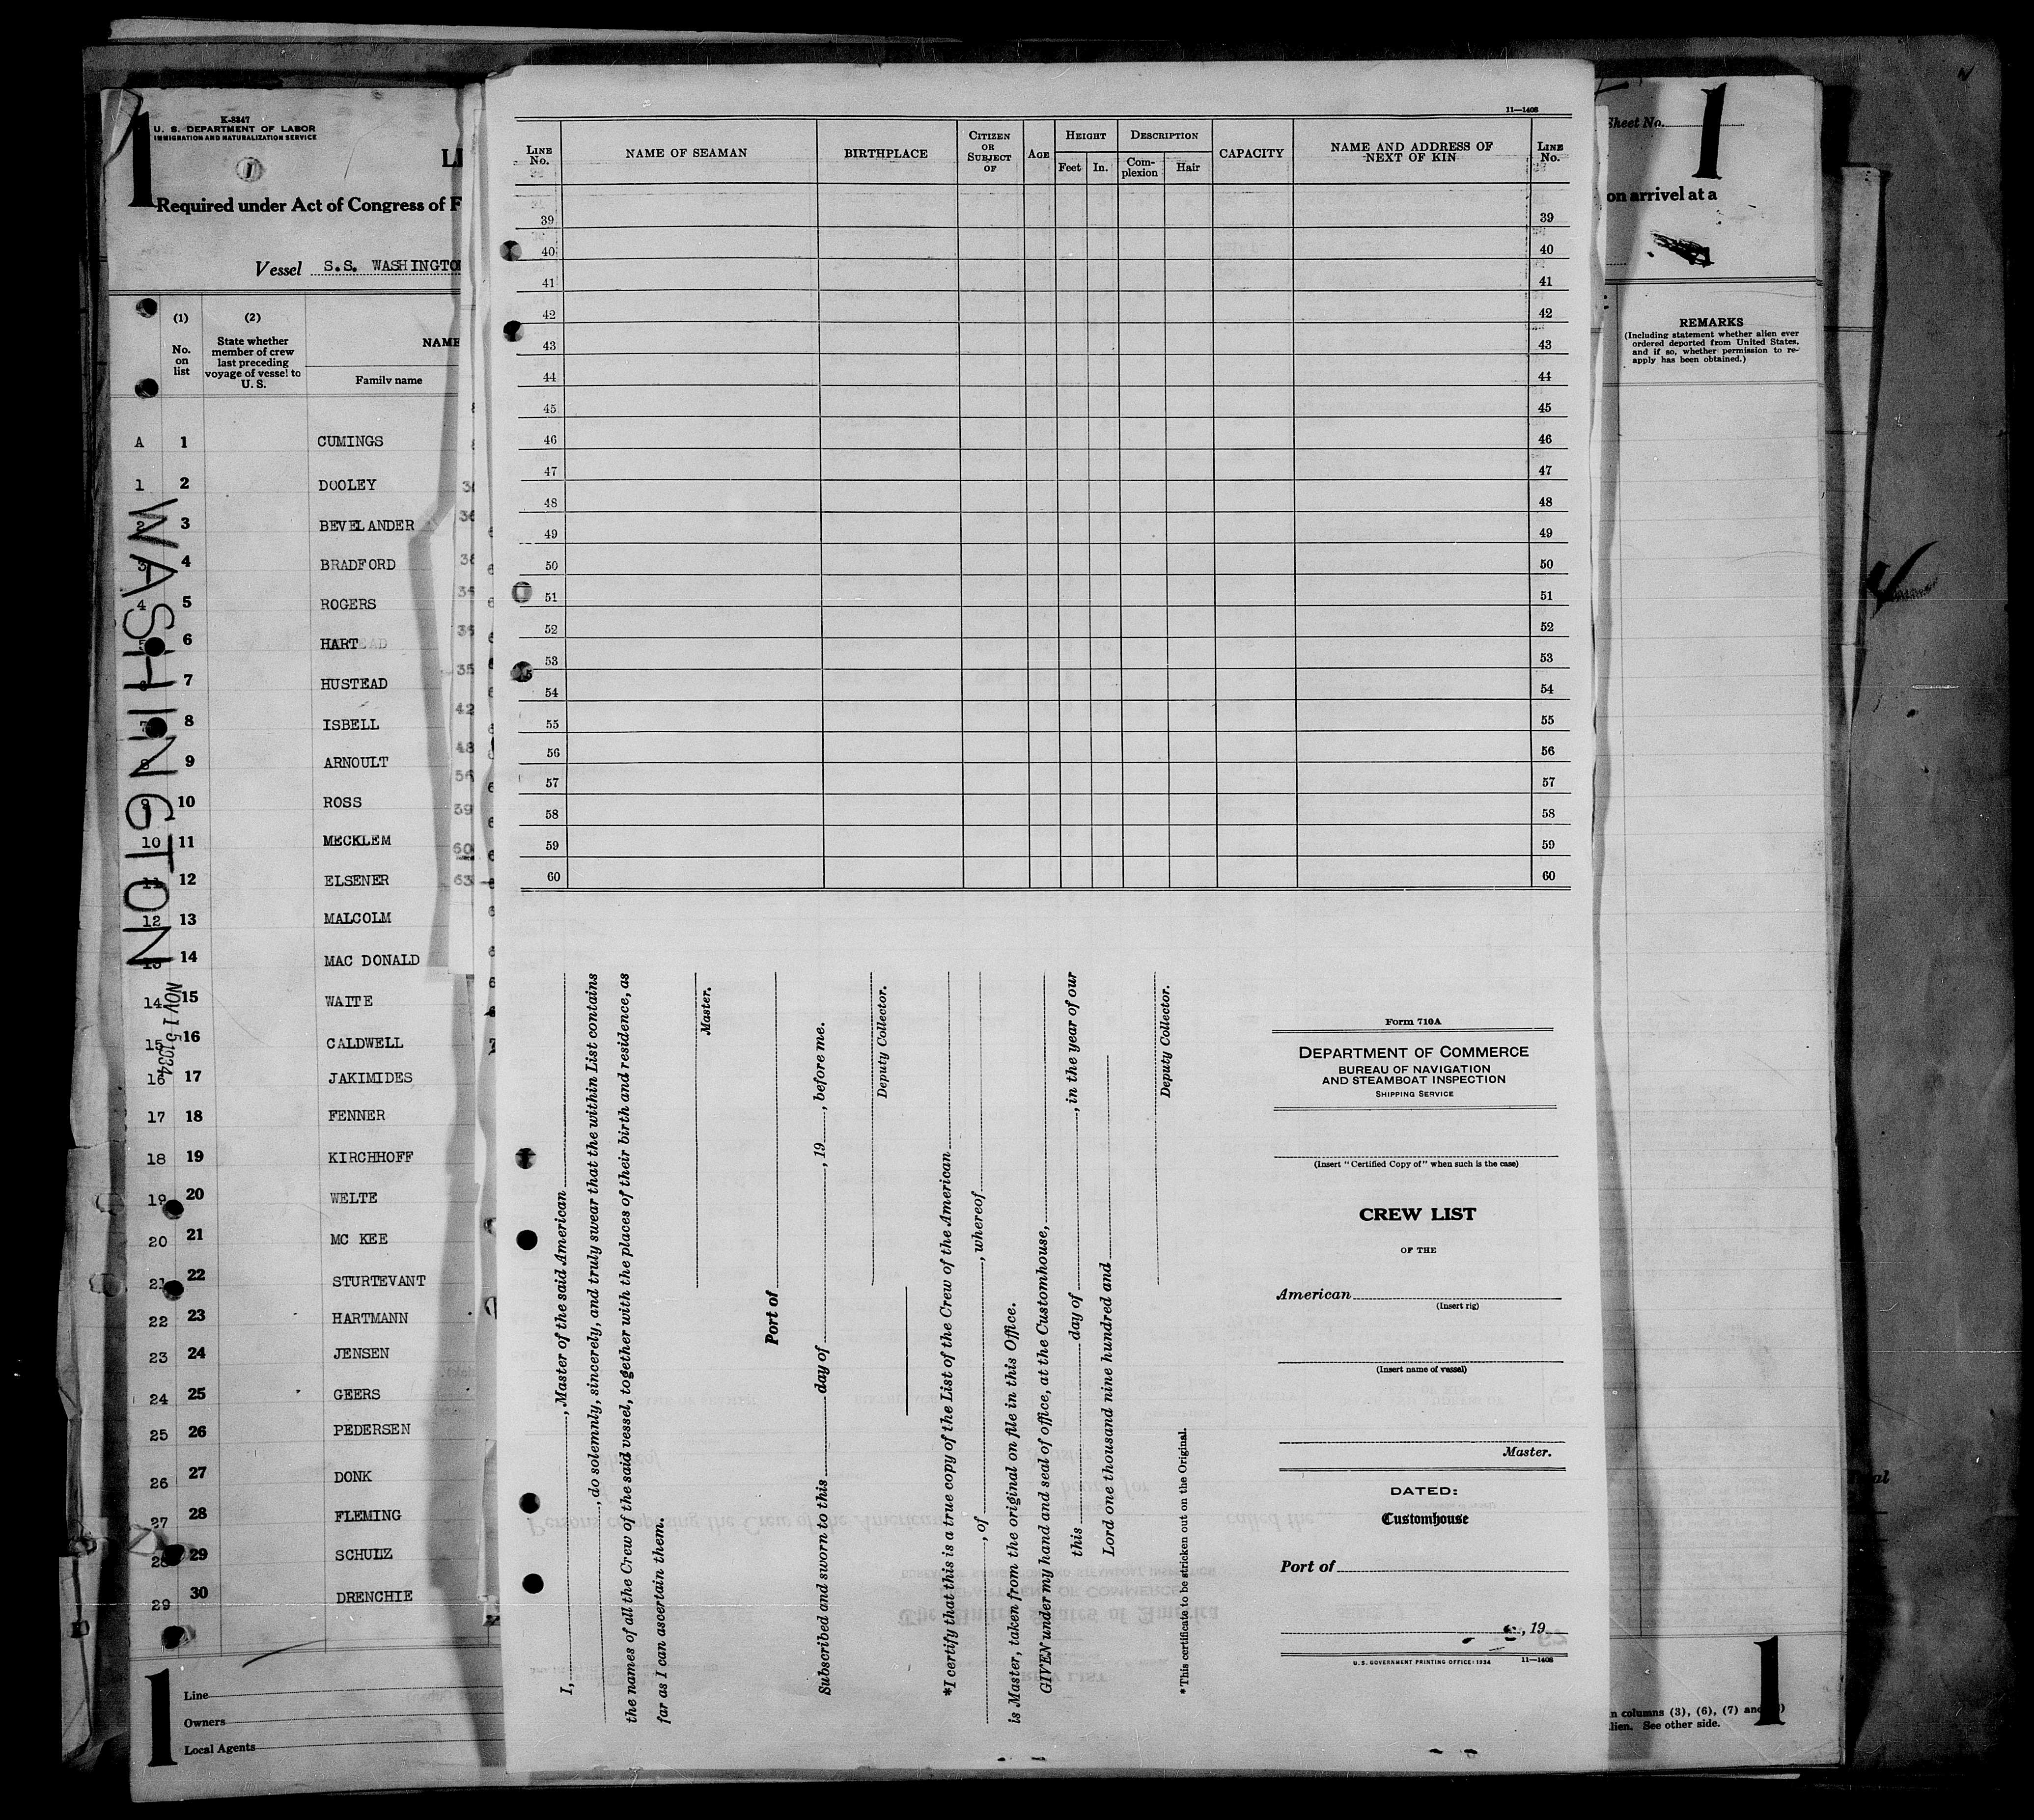 K-8347
U. S. DEPARTMENT OF LABOR
IMMIGRATION AND NATURALIZATION SERVICE
1
1
LI
Required under Act of Congress of F
Vessel S.S. WASHINGTON
(1)
No.
on
list
(2)
State whether
member of crew
last preceding
voyage of vessel to
U. S.
NAME
Family name
A 1 CUMINGS
1 2 DOOLEY
2 3 BEVELANDER
3 4 BRADFORD
4 5 ROGERS
5 6 HART
6 7 HUSTEAD
7 8 ISBELL
8 9 ARNOULT
9 10 ROSS
10 11 MECKLEM
11 12 ELSENER
12 13 MALCOLM
13 14 MAC DONALD
14 15 WAITE
15 16 CALDWELL
16 17 JAKIMIDES
17 18 FENNER
18 19 KIRCHHOFF
19 20 WELTE
20 21 MC KEE
21 22 STURTEVANT
22 23 HARTMANN
23 24 JENSEN
24 25 GEERS
25 26 PEDERSEN
26 27 DONK
27 28 FLEMING
28 29 SCHULZ
29 30 DRENCHIE
WASHINGTON
NOV 15 1934
1
Line
Owners
Local Agents
11—1408
LINE No.
NAME OF SEAMAN
BIRTHPLACE
CITIZEN OR SUBJECT OF
AGE
HEIGHT
Feet In.
DESCRIPTION
Complexion Hair
CAPACITY
NAME AND ADDRESS OF NEXT OF KIN
LINE No.
39 39
40 40
41 41
42 42
43 43
44 44
45 45
46 46
47 47
48 48
49 49
50 50
51 51
52 52
53 53
54 54
55 55
56 56
57 57
58 58
59 59
60 60
I, , Master of the said American
, do solemnly, sincerely, and truly swear that the within List contains
the names of all the Crew of the said vessel, together with the places of their birth and residence, as
far as I can ascertain them.
Master.
Port of
Subscribed and sworn to this day of , 19 , before me.
Deputy Collector.
*I certify that this is a true copy of the List of the Crew of the American
, of , whereof
is Master, taken from the original on file in this Office.
GIVEN under my hand and seal of office, at the Customhouse,
this day of , in the year of our
Lord one thousand nine hundred and
Deputy Collector.
*This certificate to be stricken out on the Original.
Form 710A
DEPARTMENT OF COMMERCE
BUREAU OF NAVIGATION
AND STEAMBOAT INSPECTION
SHIPPING SERVICE
(Insert "Certified Copy of" when such is the case)
CREW LIST
OF THE
American
(Insert rig)
(Insert name of vessel)
Master.
DATED:
Customhouse
Port of
, 19
U.S. GOVERNMENT PRINTING OFFICE: 1934 11—1408
Sheet No.
1
on arrival at a
REMARKS
(Including statement whether alien ever
ordered deported from United States,
and if so, whether permission to re-
apply has been obtained.)
n columns (3), (6), (7) and
lien. See other side.
1